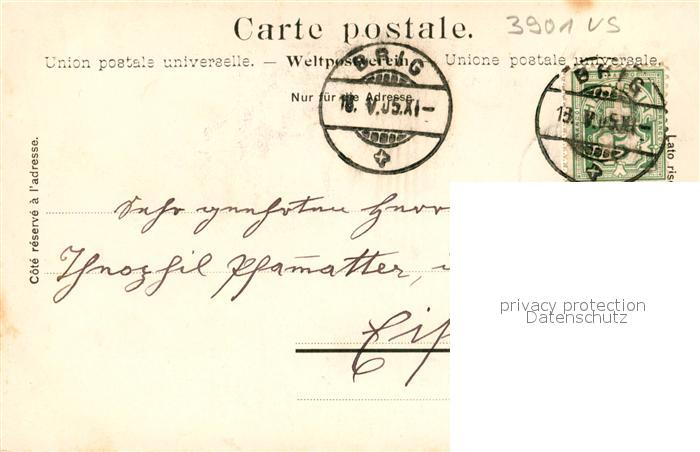 Carte postale.
3901 VS
Union postale universelle. — Weltpostverein. Unione postale universale.
Nur für die Adresse.
BRIG
18. V.05.XI–
BRIG
V.05.XI–
Côté réservé à l'adresse.
Lato
Sehr geehrten Herr
Pfamatter,
privacy protection
Datenschutz